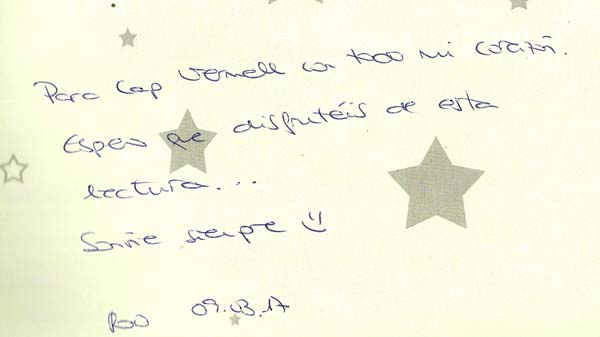 Para Cap Vermell con todo mi corazón.
Espero que disfrutéis de esta
lectura...
Sonríe siempre :)
09.03.17